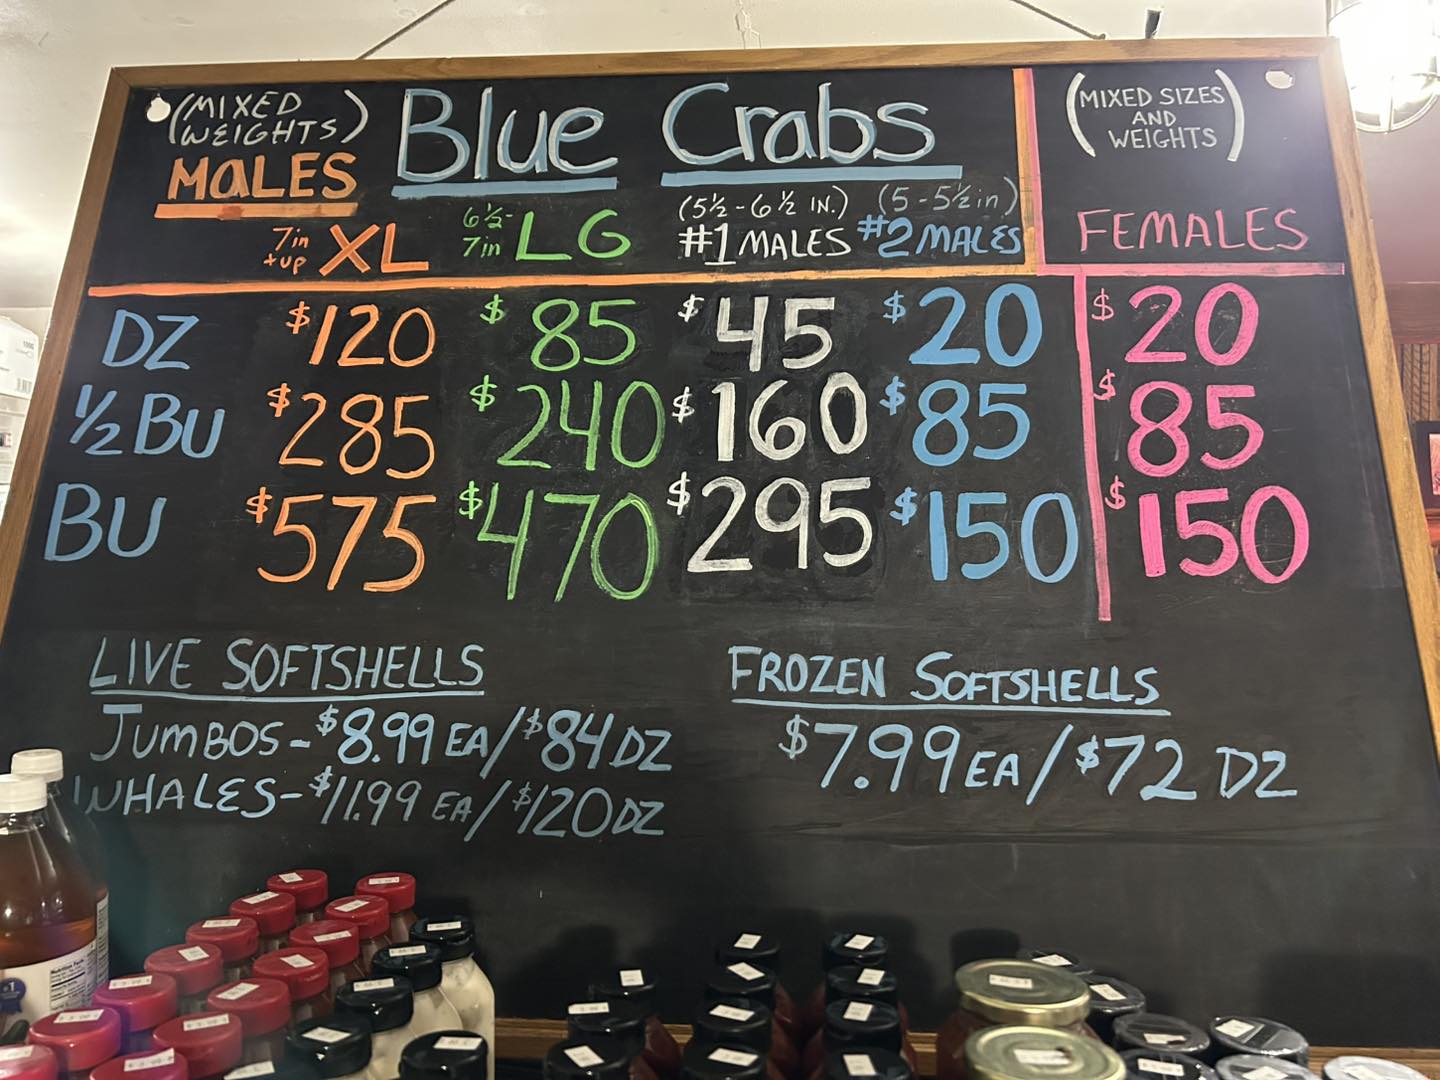 (MIXED WEIGHTS)
MALES
Blue Crabs
(MIXED SIZES
AND
WEIGHTS)
7in +up XL
6½- 7in LG
(5½-6½ IN.)
#1 MALES
(5-5½in)
#2 MALES
FEMALES
DZ $120 $85 $45 $20 $20
½ BU $285 $240 $160 $85 $85
BU $575 $470 $295 $150 $150
LIVE SOFTSHELLS
JUMBOS-$8.99 EA/$84 DZ
WHALES-$11.99 EA/$120 DZ
FROZEN SOFTSHELLS
$7.99 EA/$72 DZ
Nutrition Facts
#1